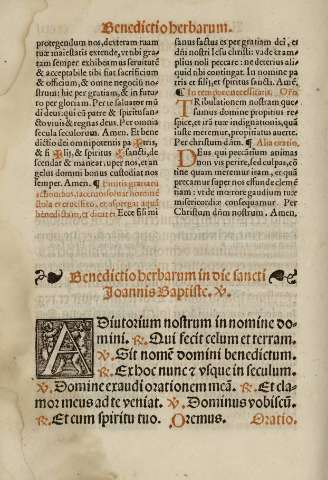 Benedictio herbarum.
protegendum nos, dexteram tuam
tuæ maiestatis extende, vt nihi gra
tam semper exhibeamus seruitutē
& acceptabile tibi fiat sacrificium
& officium, & omne negocij no-
strum: hic per gratiam, & in futu-
ro per gloriam. Per te saluator mū
di deus: qui cū patre & spiritu san-
cto viuis & regnas deus. Per omnia
secula seculorum. Amen. Et bene
dictio dei omnipotentis pa✠tris,
& fi✠lij, & spiritus✠sancti, de-
scendat & maneat super nos, et an
gelus domini bonus custodiat nos
semper. Amen. ¶
benedictam, et dicat: Ecce sis mi
sanus factus es per gratiam dei, et
dni nostri Iesu christi: vade et am
plius noli peccare: ne deterius ali
quid tibi contingat. In nomine pa
tris et filij, et spiritus sancti. Amē.
¶ In tempore necessitatis. Orō.
TRibulationem nostram que-
sumus domine propitius re-
spice, et irā tuæ indignationis, quā
iuste meremur, propitiatus auerte.
Per Christum dām. ¶ Alia oratio.
DEus qui peccatium animas
non vis perire, sed culpas, cō
tine quam meremur iram, et quā
precamur super nos effunde clemē
tiam: vt de merore gaudium tuæ
misericordiæ consequamur. Per
Christum dñm nostrum. Amen.
Benedictio herbarum in die sancti
Joannis Baptiste. ℣.
ADiutorium nostrum in nomine do-
mini. ℟. Qui fecit celum et terram.
℣. Sit nomē domini benedictum.
℟. Ex hoc nunc & vsque in seculum.
℣. Domine exaudi orationem meā. ℟. Et cla-
mor meus ad te veniat. ℣. Dominus vobiscū.
℟. Et cum spiritu tuo. Oremus. Oratio.